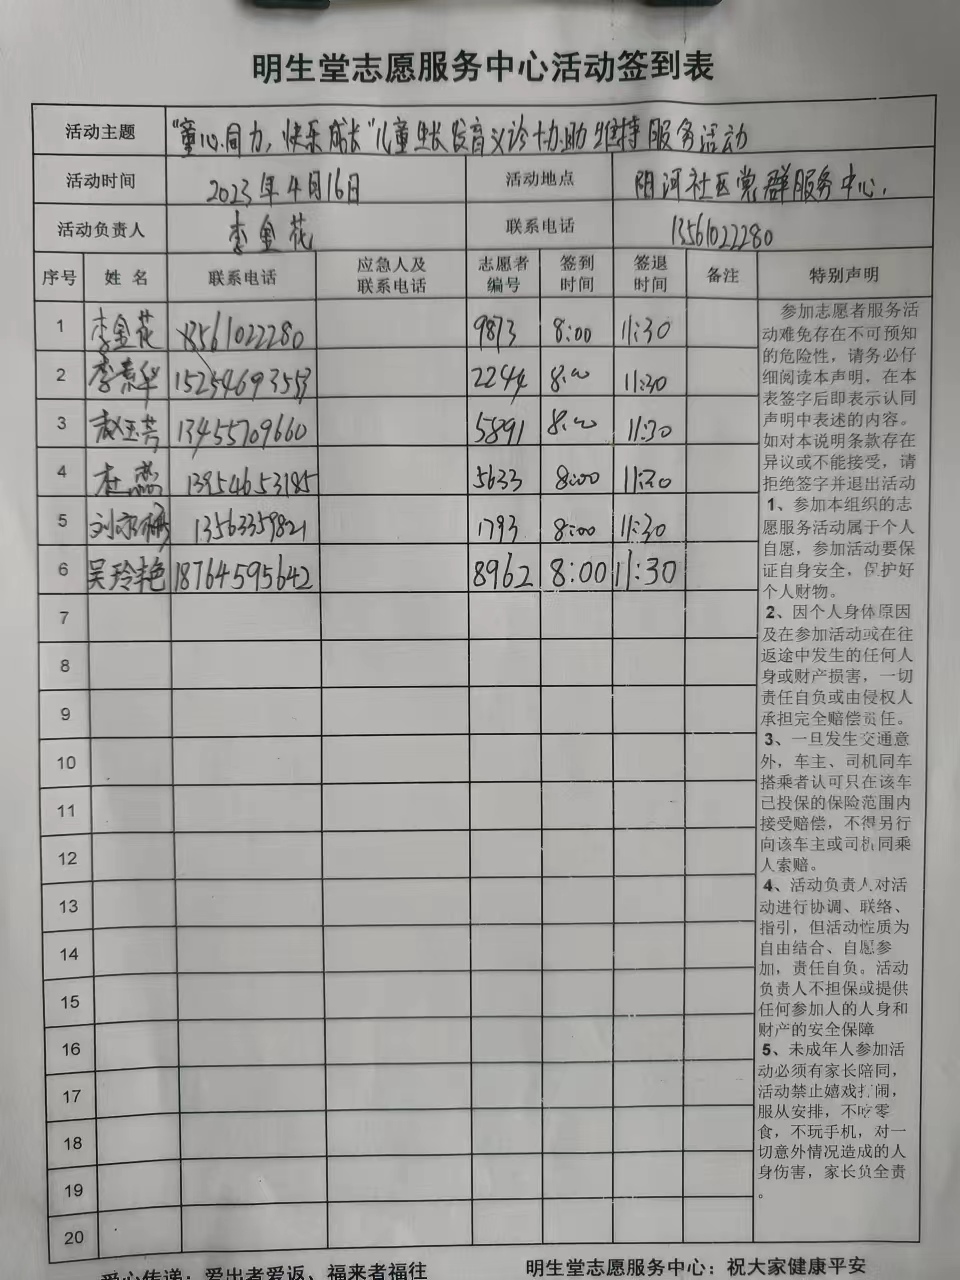 明生堂志愿服务中心活动签到表
活动主题 "童心同力，快乐成长"儿童生长发育义诊协助维持服务活动
活动时间 2023年4月16日 活动地点 阴河社区党群服务中心.
活动负责人 李金花 联系电话 13561022280
序号 姓名 联系电话 应急人及联系电话 志愿者编号 签到时间 签退时间 备注 特别声明
1 李金花 13561022280 9873 8:00 11:30
2 李素华 15254693553 2244 8:00 11:30
3 赵玉芳 13455709660 5891 8:00 11:30
4 杜燕 13954653195 5633 8:00 11:30
5 刘 13563359821 1793 8:00 11:30
6 吴玲艳 18764595642 8962 8:00 11:30
7
8
9
10
11
12
13
14
15
16
17
18
19
20
参加志愿者服务活
动难免存在不可预知
的危险性，请务必仔
细阅读本声明，在本
表签字后即表示认同
声明中表述的内容。
如对本说明条款存在
异议或不能接受，请
拒绝签字并退出活动
1、参加本组织的志
愿服务活动属于个人
自愿，参加活动要保
证自身安全，保护好
个人财物。
2、因个人身体原因
及在参加活动或在往
返途中发生的任何人
身或财产损害，一切
责任自负或由侵权人
承担完全赔偿责任。
3、一旦发生交通意
外，车主、司机同车
搭乘者认可只在该车
已投保的保险范围内
接受赔偿，不得另行
向该车主或司机同乘
人索赔。
4、活动负责人对活
动进行协调、联络、
指引，但活动性质为
自由结合、自愿参
加，责任自负。活动
负责人不担保或提供
任何参加人的人身和
财产的安全保障
5、未成年人参加活
动必须有家长陪同，
活动禁止嬉戏打闹，
服从安排，不吃零
食，不玩手机，对一
切意外情况造成的人
身伤害，家长负全责
。
爱心传递：爱出者爱返、福来者福往 明生堂志愿服务中心：祝大家健康平安